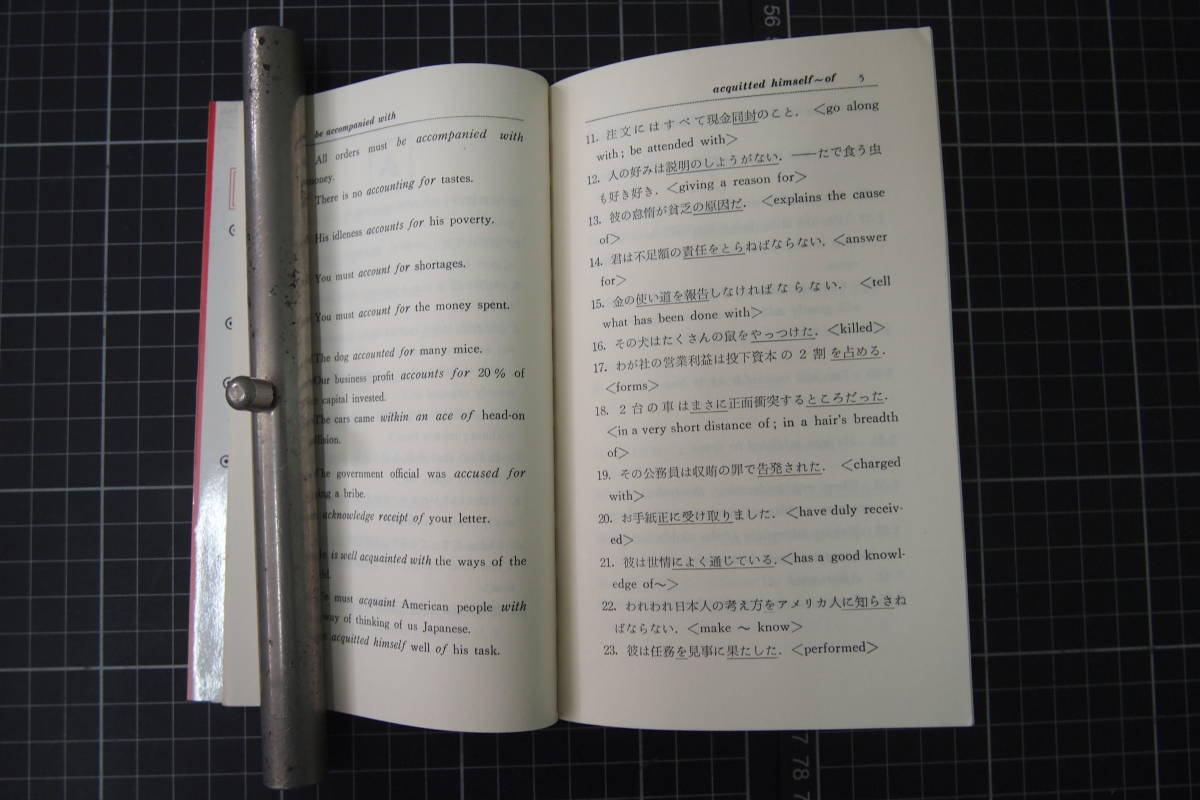 be accompanied with
All orders must be accompanied with
money.
There is no accounting for tastes.
His idleness accounts for his poverty.
You must account for shortages.
You must account for the money spent.
The dog accounted for many mice.
Our business profit accounts for 20% of
capital invested.
The cars came within an ace of head-on
The government official was accused for
a bribe.
acknowledge receipt of your letter.
is well acquainted with the ways of the
must acquaint American people with
way of thinking of us Japanese.
acquitted himself well of his task.
acquitted himself~of 5
11. 注文にはすべて現金同封のこと. <go along
with; be attended with>
12. 人の好みは説明のしようがない. ——たで食う虫
も好き好き. <giving a reason for>
13. 彼の怠惰が貧乏の原因だ. <explains the cause
of>
14. 君は不足額の責任をとらねばならない. <answer
for>
15. 金の使い道を報告しなければならない. <tell
what has been done with>
16. その犬はたくさんの鼠をやっつけた. <killed>
17. わが社の営業利益は投下資本の2割を占める.
<forms>
18. 2台の車はまさに正面衝突するところだった.
<in a very short distance of; in a hair's breadth
of>
19. その公務員は収賄の罪で告発された. <charged
with>
20. お手紙正に受け取りました. <have duly receiv-
ed>
21. 彼は世情によく通じている. <has a good knowl-
edge of~>
22. われわれ日本人の考え方をアメリカ人に知らさね
ばならない. <make ~ know>
23. 彼は任務を見事に果たした. <performed>
56
77 78 7